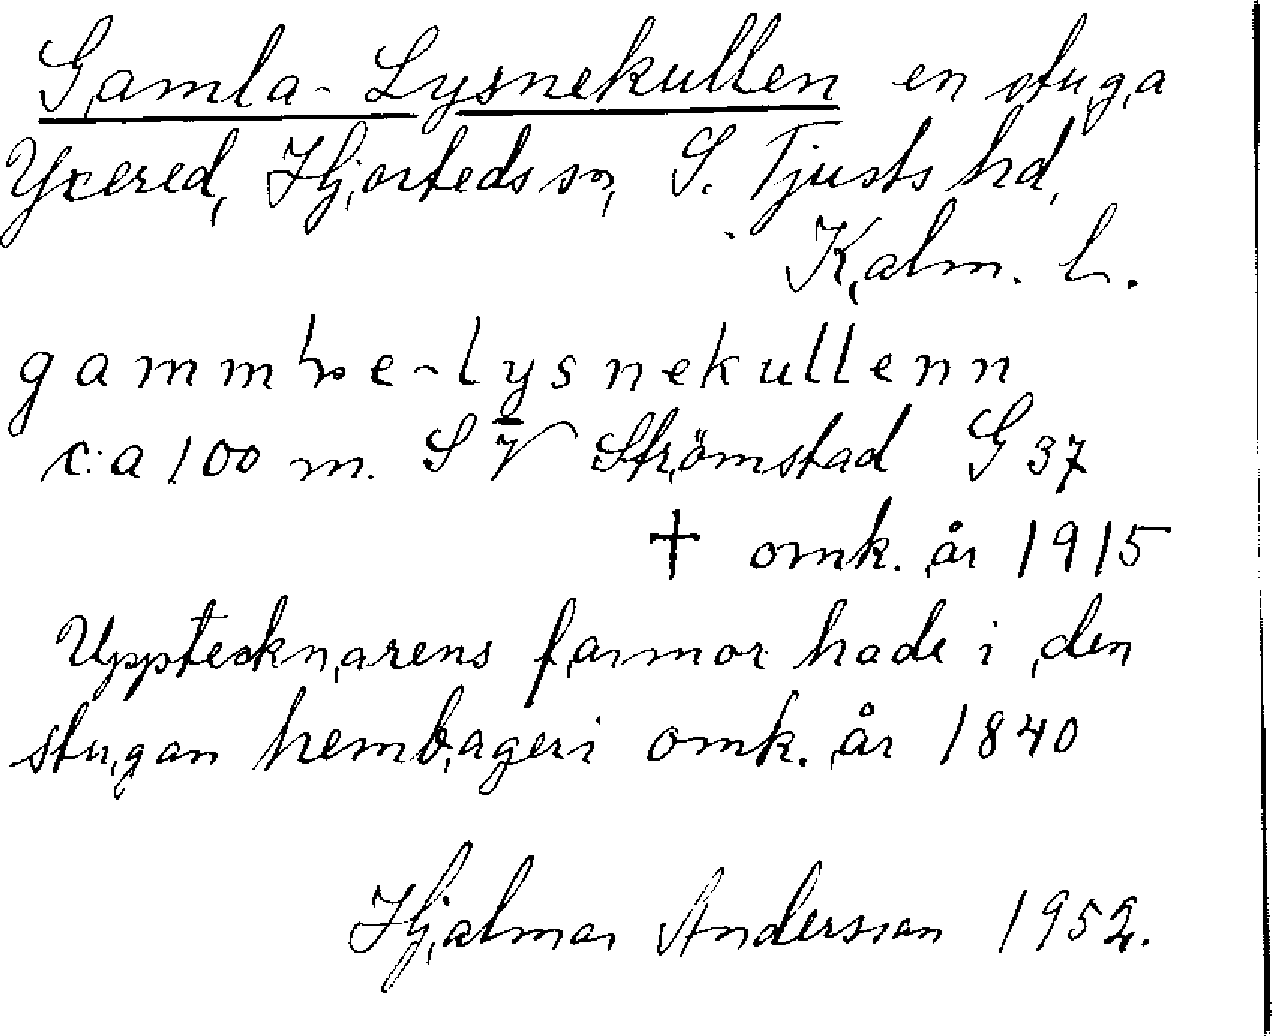 Gamla-Lysnekullen en stuga
Yxered, Hjorteds sn, S. Tjusts hd,
Kalm. L.
e-lysnekullenn
c:a 100 m. SV Strömstad G 37
† omk. år 1915
Upptecknarens farmor hade i den
stugan hembageri omk. år 1840
Hjalmar Andersson 1952.